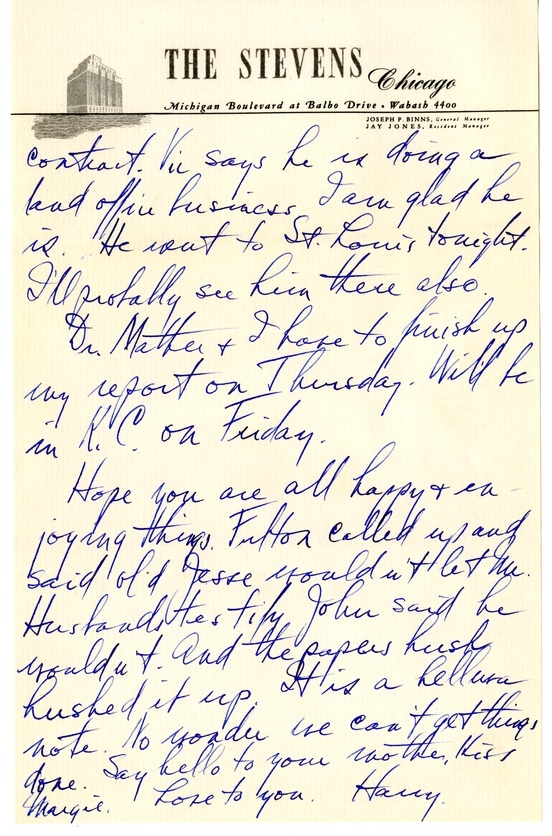 THE STEVENS
Chicago
Michigan Boulevard at Balbo Drive • Wabash 4400
JOSEPH P. BINNS, General Manager
JAY JONES, Resident Manager
contract. Vic says he is doing a
land office business. I am glad he
is. He went to St. Louis tonight.
I'll probally see him there also.
Dr. Mather & I have to finish up
my report on Thursday. Will be
in K.C. on Friday.
Hope you are all happy & en-
joying things. Fulton called up and
said old Jesse wouldn't let Mr.
Husbands testify. John said he
wouldn't. And the papers hush
hushed it up. It is a helluva
note. No wonder we can't get things
done. Say hello to your mother, Kiss
Margie. Love to you. Harry.